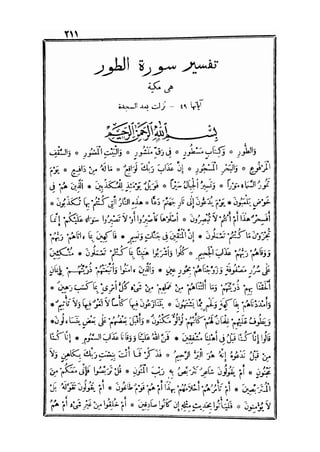 ٢١١
تفسير سورة الطور
هى مكية
آياتها ٤٩ - نزلت بعد السجدة
بِسْمِ اللَّهِ الرَّحْمَنِ الرَّحِيمِ
وَالطُّورِ * وَكِتَابٍ مَسْطُورٍ * فِي رَقٍّ مَنْشُورٍ * وَالْبَيْتِ الْمَعْمُورِ * وَالسَّقْفِ
الْمَرْفُوعِ * وَالْبَحْرِ الْمَسْجُورِ * إِنَّ عَذَابَ رَبِّكَ لَوَاقِعٌ * مَا لَهُ مِنْ دَافِعٍ * يَوْمَ
تَمُورُ السَّمَاءُ مَوْرًا * وَتَسِيرُ الْجِبَالُ سَيْرًا * فَوَيْلٌ يَوْمَئِذٍ لِلْمُكَذِّبِينَ * الَّذِينَ هُمْ فِي
خَوْضٍ يَلْعَبُونَ * يَوْمَ يُدَعُّونَ إِلَى نَارِ جَهَنَّمَ دَعًّا * هَذِهِ النَّارُ الَّتِي كُنْتُمْ بِهَا تُكَذِّبُونَ *
أَفَسِحْرٌ هَذَا أَمْ أَنْتُمْ لَا تُبْصِرُونَ * اصْلَوْهَا فَاصْبِرُوا أَوْ لَا تَصْبِرُوا سَوَاءٌ عَلَيْكُمْ إِنَّمَا
تُجْزَوْنَ مَا كُنْتُمْ تَعْمَلُونَ * إِنَّ الْمُتَّقِينَ فِي جَنَّاتٍ وَنَعِيمٍ * فَاكِهِينَ بِمَا ءَاتَاهُمْ رَبُّهُمْ
وَوَقَاهُمْ رَبُّهُمْ عَذَابَ الْجَحِيمِ * كُلُوا وَاشْرَبُوا هَنِيئًا بِمَا كُنْتُمْ تَعْمَلُونَ * مُتَّكِئِينَ
عَلَى سُرُرٍ مَصْفُوفَةٍ وَزَوَّجْنَاهُمْ بِحُورٍ عِينٍ * وَالَّذِينَ ءَامَنُوا وَاتَّبَعَتْهُمْ ذُرِّيَّتُهُمْ بِإِيمَانٍ
أَلْحَقْنَا بِهِمْ ذُرِّيَّتَهُمْ وَمَا أَلَتْنَاهُمْ مِنْ عَمَلِهِمْ مِنْ شَيْءٍ كُلُّ امْرِئٍ بِمَا كَسَبَ رَهِينٌ *
وَأَمْدَدْنَاهُمْ بِفَاكِهَةٍ وَلَحْمٍ مِمَّا يَشْتَهُونَ * يَتَنَازَعُونَ فِيهَا كَأْسًا لَا لَغْوٌ فِيهَا وَلَا تَأْثِيمٌ *
وَيَطُوفُ عَلَيْهِمْ غِلْمَانٌ لَهُمْ كَأَنَّهُمْ لُؤْلُؤٌ مَكْنُونٌ * وَأَقْبَلَ بَعْضُهُمْ عَلَى بَعْضٍ يَتَسَاءَلُونَ *
قَالُوا إِنَّا كُنَّا قَبْلُ فِي أَهْلِنَا مُشْفِقِينَ * فَمَنَّ اللَّهُ عَلَيْنَا وَوَقَانَا عَذَابَ السَّمُومِ * إِنَّا كُنَّا
مِنْ قَبْلُ نَدْعُوهُ إِنَّهُ هُوَ الْبَرُّ الرَّحِيمُ * فَذَكِّرْ فَمَا أَنْتَ بِنِعْمَتِ رَبِّكَ بِكَاهِنٍ وَلَا
مَجْنُونٍ * أَمْ يَقُولُونَ شَاعِرٌ نَتَرَبَّصُ بِهِ رَيْبَ الْمَنُونِ * قُلْ تَرَبَّصُوا فَإِنِّي مَعَكُمْ مِنَ
الْمُتَرَبِّصِينَ * أَمْ تَأْمُرُهُمْ أَحْلَامُهُمْ بِهَذَا أَمْ هُمْ قَوْمٌ طَاغُونَ * أَمْ يَقُولُونَ تَقَوَّلَهُ بَلْ
لَا يُؤْمِنُونَ * فَلْيَأْتُوا بِحَدِيثٍ مِثْلِهِ إِنْ كَانُوا صَادِقِينَ * أَمْ خُلِقُوا مِنْ غَيْرِ شَيْءٍ أَمْ هُمُ